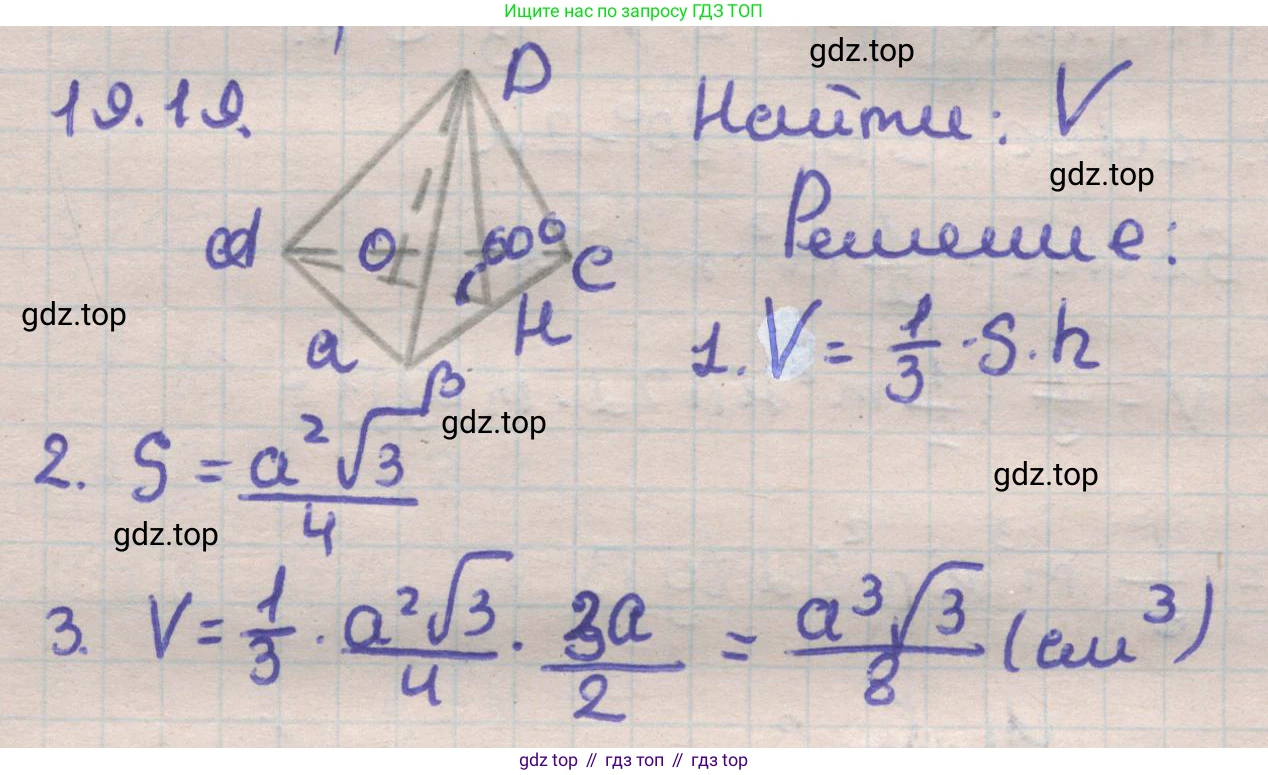 Ищите нас по запросу ГДЗ ТОП
gdz.top
19.19.
D
Найти: V
gdz.top
Решение:
O
60°
C
gdz.top
a
H
1. V = 1/3 · S · h
B
gdz.top
2. S = a²√3/4
gdz.top
gdz.top
3. V = 1/3 · a²√3/4 · 3a/2 = a³√3/8 (см³)
gdz top // гдз топ // gdz top